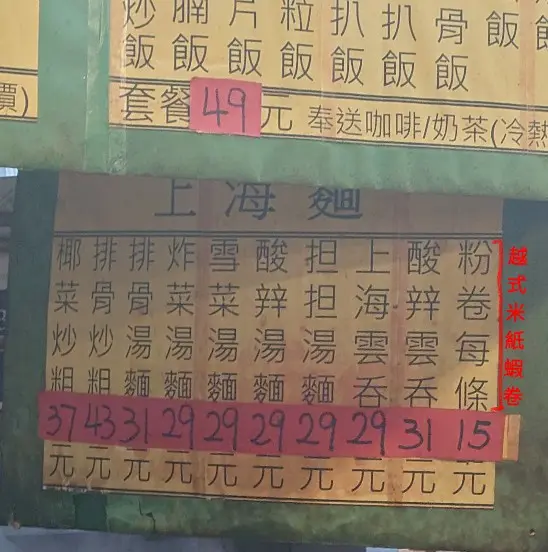 飯
飯
骨飯
扒飯
扒飯
粒飯
片飯
腩飯
炒飯
價)
套餐49元 奉送咖啡/奶茶(冷熱
上海麵
越式米紙蝦卷
粉卷每條15元
酸辢雲吞31元
上海雲吞29元
担担湯麵29元
酸辢湯麵29元
雪菜湯麵29元
炸菜湯麵29元
排骨湯麵31元
排骨炒粗43元
椰菜炒粗37元